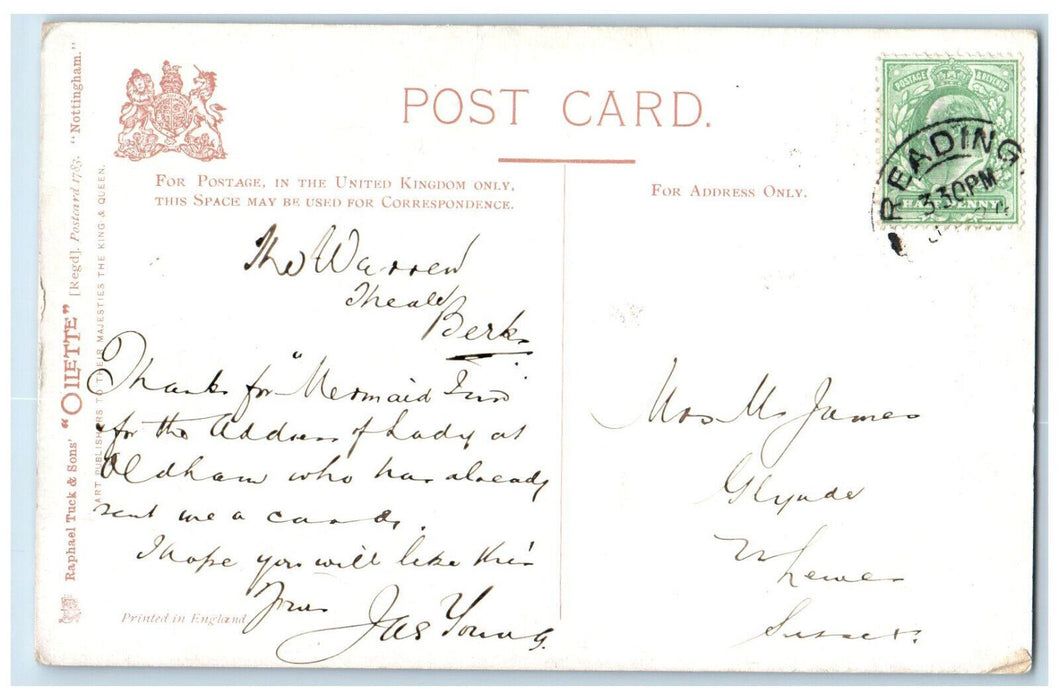 POST CARD.
FOR POSTAGE, IN THE UNITED KINGDOM ONLY,
THIS SPACE MAY BE USED FOR CORRESPONDENCE.
FOR ADDRESS ONLY.
POSTAGE & REVENUE
HALFPENNY
READING
3.30PM
The Warren
Theale
Berks
Thanks for "Mermaid Inn"
& for the Address of Lady at
Oldham who has already
sent me a card.
I hope you will like this
Yours
Jas Young.
Mrs M James
Glynde
Nr Lewes
Sussex.
Raphael Tuck & Sons' "OILETTE" [Regd]. Postcard 1783. "Nottingham."
ART PUBLISHERS TO THEIR MAJESTIES THE KING & QUEEN.
Printed in England